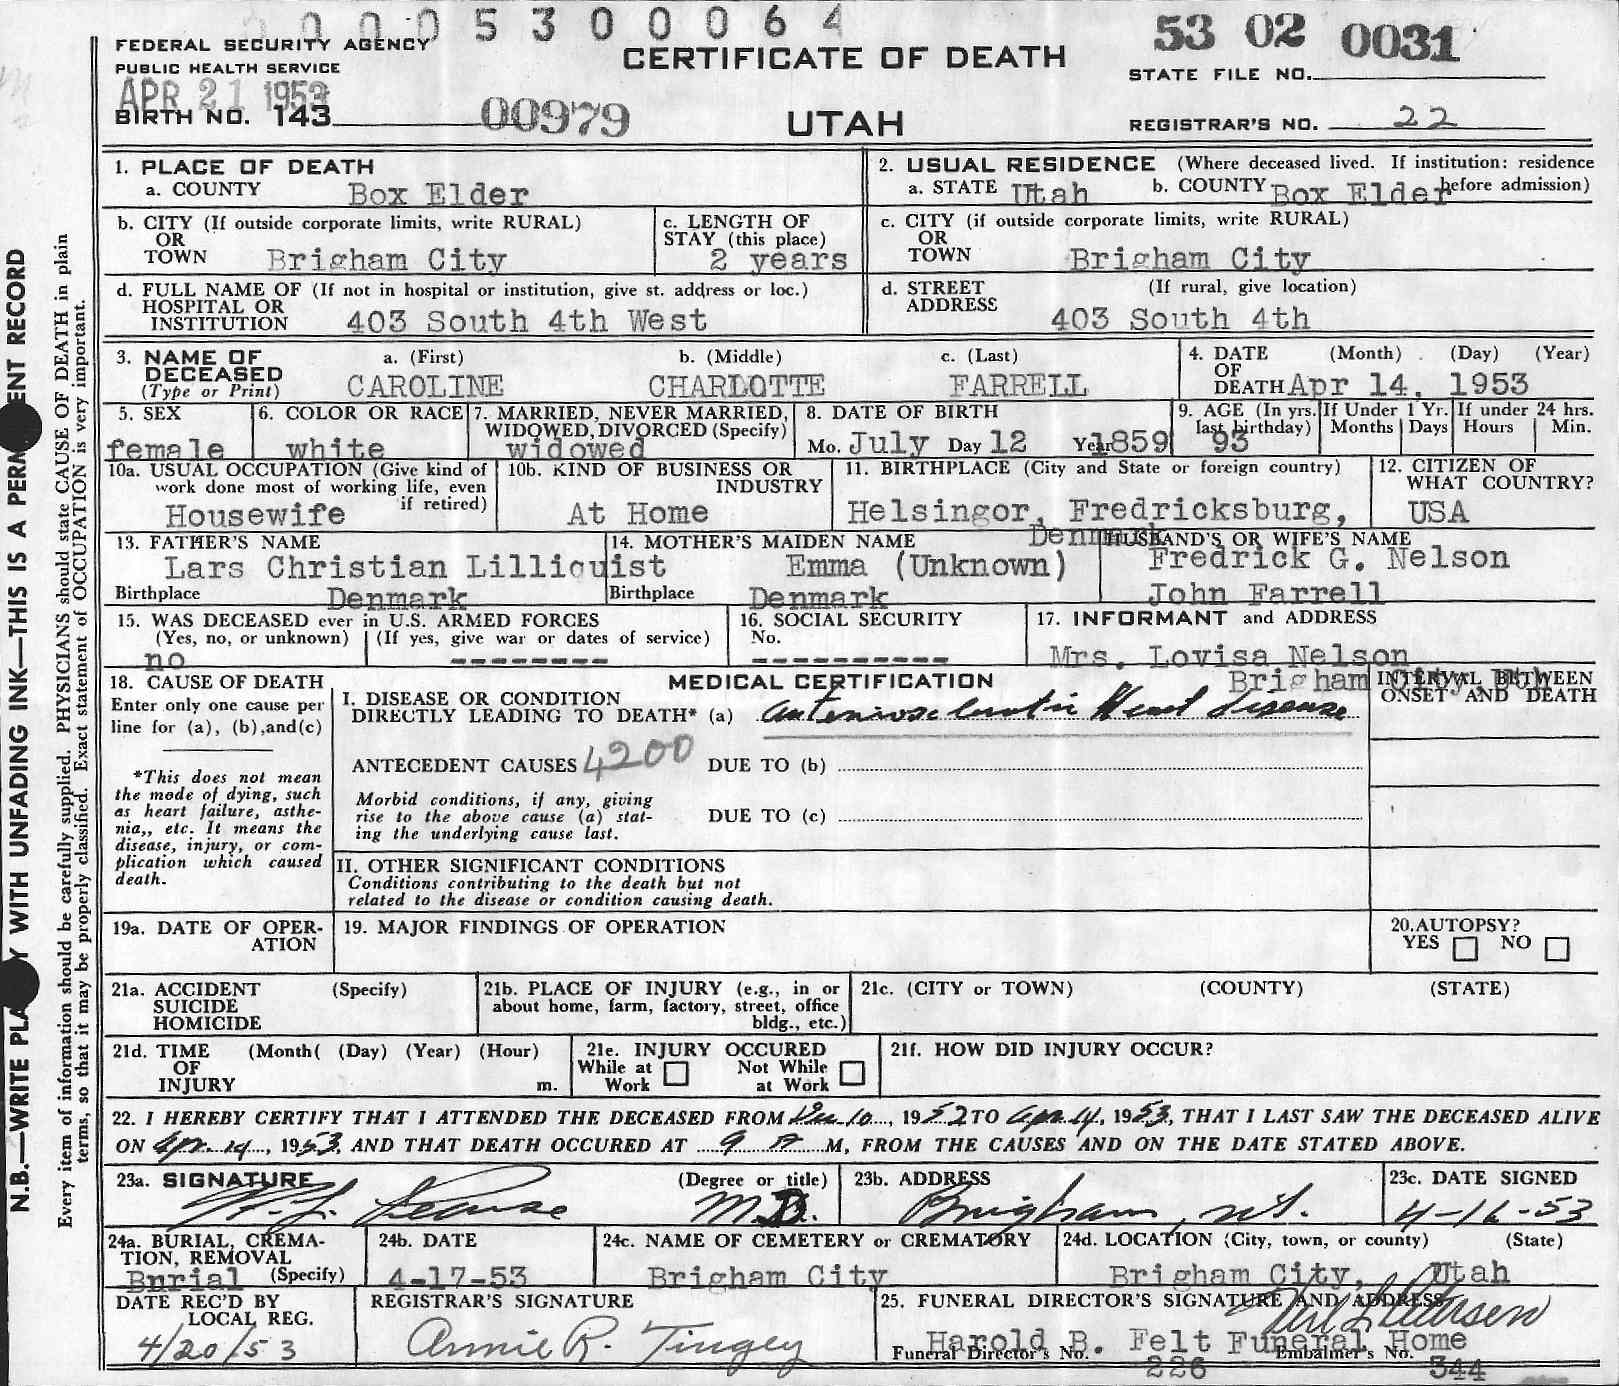 0005300064
53 02 0031
FEDERAL SECURITY AGENCY
PUBLIC HEALTH SERVICE
CERTIFICATE OF DEATH
STATE FILE NO.
APR 21 1953
BIRTH NO. 143
00979
UTAH
REGISTRAR'S NO. 22
N.B.—WRITE PLA Y WITH UNFADING INK—THIS IS A PERM ENT RECORD
Every item of information should be carefully supplied. PHYSICIANS should state CAUSE OF DEATH in plain
terms, so that it may be properly classified. Exact statement of OCCUPATION is very important.
1. PLACE OF DEATH
a. COUNTY Box Elder
2. USUAL RESIDENCE (Where deceased lived. If institution: residence
a. STATE Utah b. COUNTY Box Elder before admission)
b. CITY (If outside corporate limits, write RURAL)
OR
TOWN Brigham City
c. LENGTH OF
STAY (this place)
2 years
c. CITY (if outside corporate limits, write RURAL)
OR
TOWN Brigham City
d. FULL NAME OF (If not in hospital or institution, give st. address or loc.)
HOSPITAL OR
INSTITUTION 403 South 4th West
d. STREET (If rural, give location)
ADDRESS 403 South 4th
3. NAME OF a. (First) b. (Middle) c. (Last)
DECEASED
(Type or Print) CAROLINE CHARLOTTE FARRELL
4. DATE (Month) (Day) (Year)
OF
DEATH Apr 14, 1953
5. SEX
female
6. COLOR OR RACE
white
7. MARRIED, NEVER MARRIED,
WIDOWED, DIVORCED (Specify)
widowed
8. DATE OF BIRTH
Mo. July Day 12 Year 1859
9. AGE (In yrs.
last birthday)
93
If Under 1 Yr.
Months Days
If under 24 hrs.
Hours Min.
10a. USUAL OCCUPATION (Give kind of
work done most of working life, even
if retired)
Housewife
10b. KIND OF BUSINESS OR
INDUSTRY
At Home
11. BIRTHPLACE (City and State or foreign country)
Helsingor, Fredricksburg,
Denmark
12. CITIZEN OF
WHAT COUNTRY?
USA
13. FATHER'S NAME
Lars Christian Lillicuist
Birthplace Denmark
14. MOTHER'S MAIDEN NAME
Emma (Unknown)
Birthplace Denmark
HUSBAND'S OR WIFE'S NAME
Fredrick G. Nelson
John Farrell
15. WAS DECEASED ever in U.S. ARMED FORCES
(Yes, no, or unknown) (If yes, give war or dates of service)
no --------
16. SOCIAL SECURITY
No.
----------
17. INFORMANT and ADDRESS
Mrs. Lovisa Nelson
Brigham City, Utah
18. CAUSE OF DEATH
Enter only one cause per
line for (a), (b), and (c)
*This does not mean
the mode of dying, such
as heart failure, asthe-
nia,, etc. It means the
disease, injury, or com-
plication which caused
death.
MEDICAL CERTIFICATION
INTERVAL BETWEEN
ONSET AND DEATH
I. DISEASE OR CONDITION
DIRECTLY LEADING TO DEATH* (a) Arteriosclerotic Heart disease
ANTECEDENT CAUSES 4200 DUE TO (b)
Morbid conditions, if any, giving
rise to the above cause (a) stat-
ing the underlying cause last.
DUE TO (c)
II. OTHER SIGNIFICANT CONDITIONS
Conditions contributing to the death but not
related to the disease or condition causing death.
19a. DATE OF OPER-
ATION
19. MAJOR FINDINGS OF OPERATION
20. AUTOPSY?
YES NO
21a. ACCIDENT (Specify)
SUICIDE
HOMICIDE
21b. PLACE OF INJURY (e.g., in or
about home, farm, factory, street, office
bldg., etc.)
21c. (CITY or TOWN) (COUNTY) (STATE)
21d. TIME (Month( (Day) (Year) (Hour)
OF
INJURY m.
21e. INJURY OCCURED
While at Not While
Work at Work
21f. HOW DID INJURY OCCUR?
22. I HEREBY CERTIFY THAT I ATTENDED THE DECEASED FROM Dec 10, 1952 TO Apr. 14, 1953, THAT I LAST SAW THE DECEASED ALIVE
ON Apr. 14, 1953, AND THAT DEATH OCCURED AT 9 P M, FROM THE CAUSES AND ON THE DATE STATED ABOVE.
23a. SIGNATURE (Degree or title)
M.D.
23b. ADDRESS
Brigham, Ut.
23c. DATE SIGNED
4-16-53
24a. BURIAL, CREMA-
TION, REMOVAL
Burial (Specify)
24b. DATE
4-17-53
24c. NAME OF CEMETERY or CREMATORY
Brigham City
24d. LOCATION (City, town, or county) (State)
Brigham City, Utah
DATE REC'D BY
LOCAL REG.
4/20/53
REGISTRAR'S SIGNATURE
Annie R. Tingey
25. FUNERAL DIRECTOR'S SIGNATURE AND ADDRESS
Harold B. Felt Funeral Home
Funeral Director's No. 226 Embalmer's No. 344